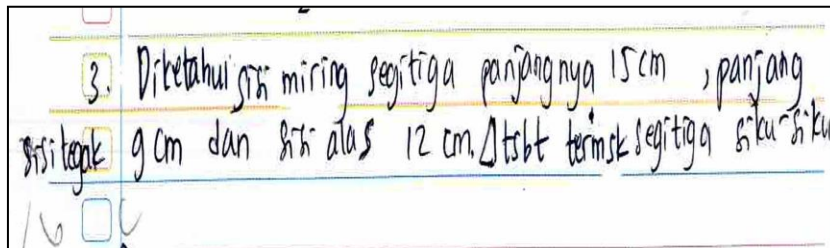 3. Diketahui sisi miring segitiga panjangnya 15 cm , panjang
sisi tegak 9 cm dan sisi alas 12 cm. Δ tsbt termsk segitiga siku-siku